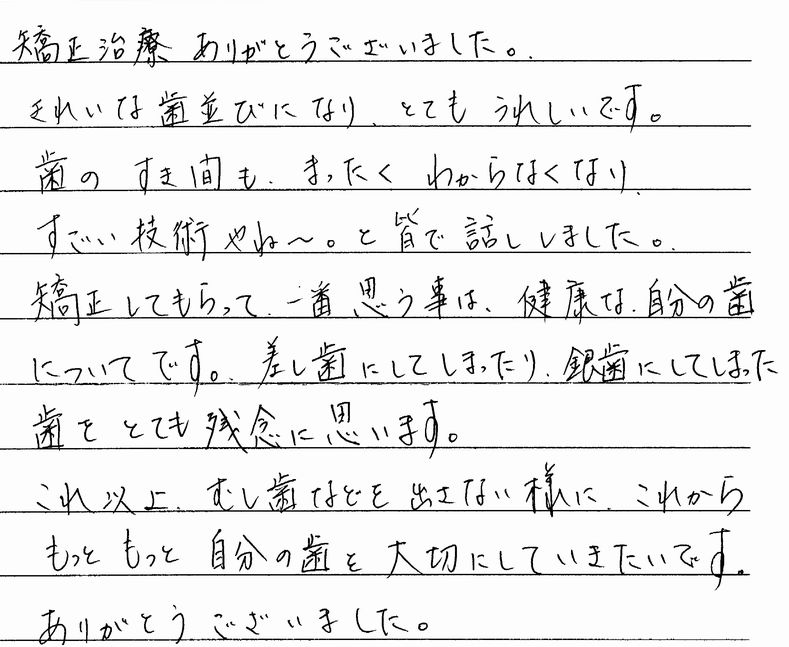 矯正治療 ありがとうございました。
きれいな歯並びになり、とても うれしいです。
歯の すき間も、まったく わからなくなり、
すごい技術やね〜。と皆で話ししました。
矯正してもらって、一番思う事は、健康な、自分の歯
についてです。差し歯にしてしまったり、銀歯にしてしまった
歯をとても残念に思います。
これ以上、むし歯などを出さない様に、これから
もっと もっと 自分の歯を大切にしていきたいです。
ありがとう ございました。